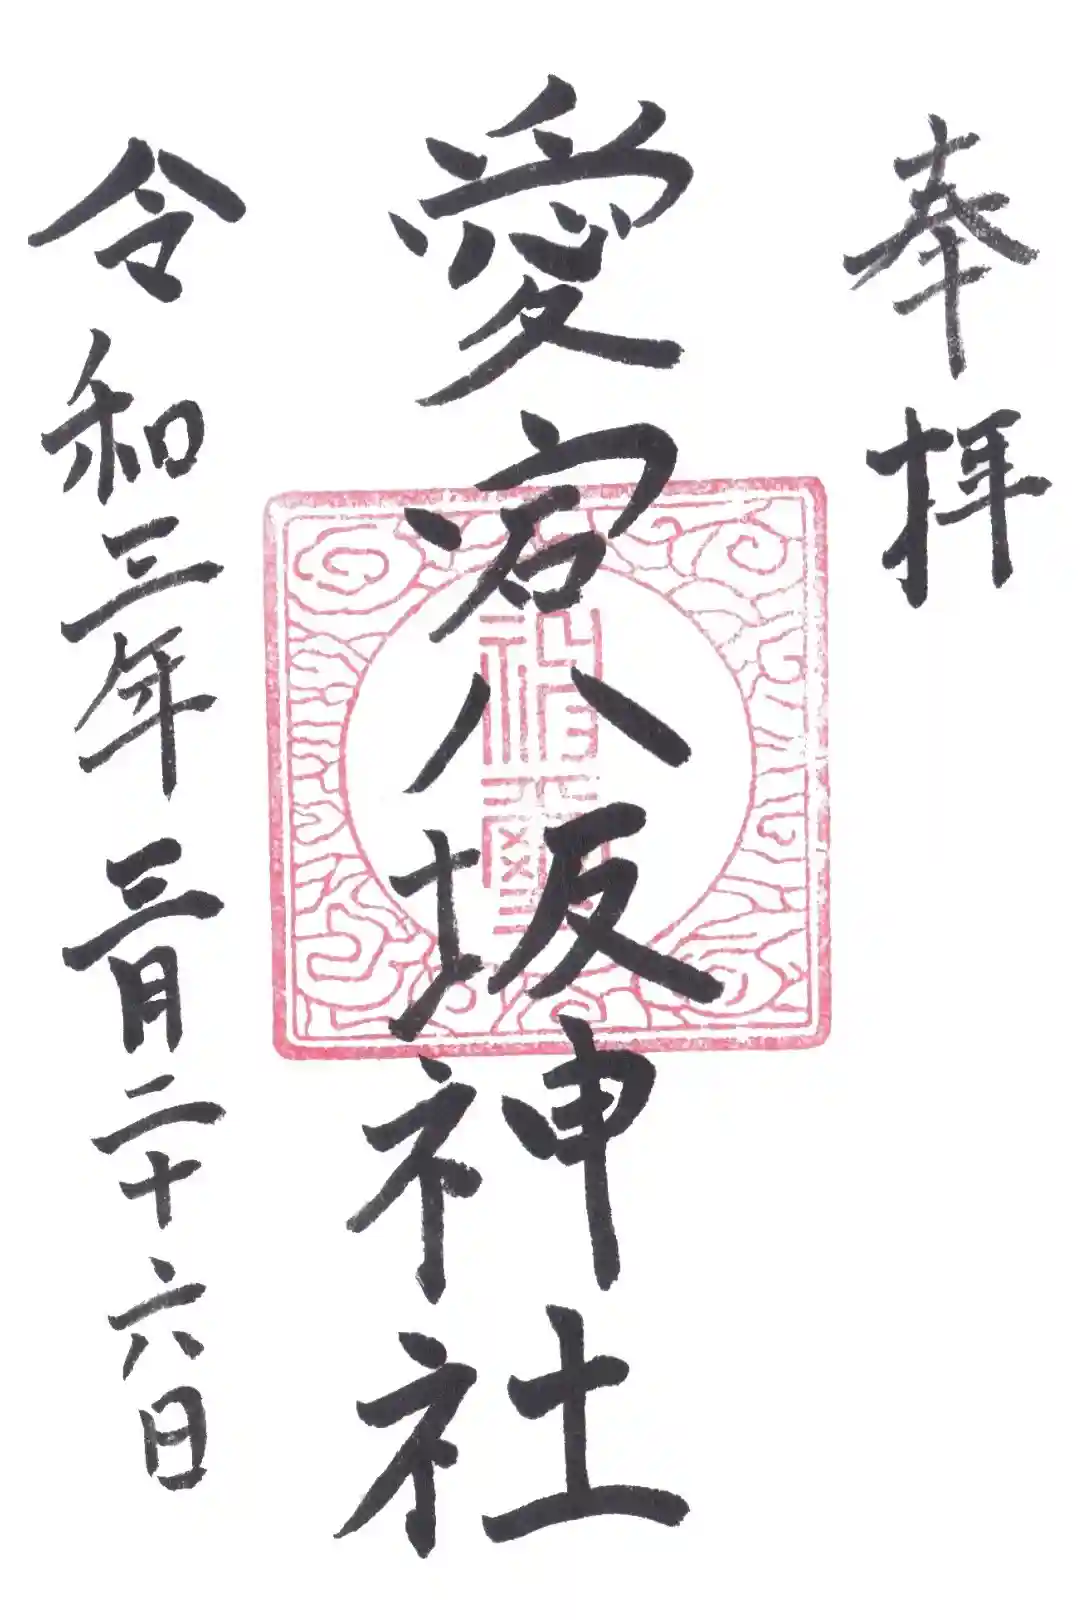 奉拝
愛宕八坂神社
令和三年三月二十六日